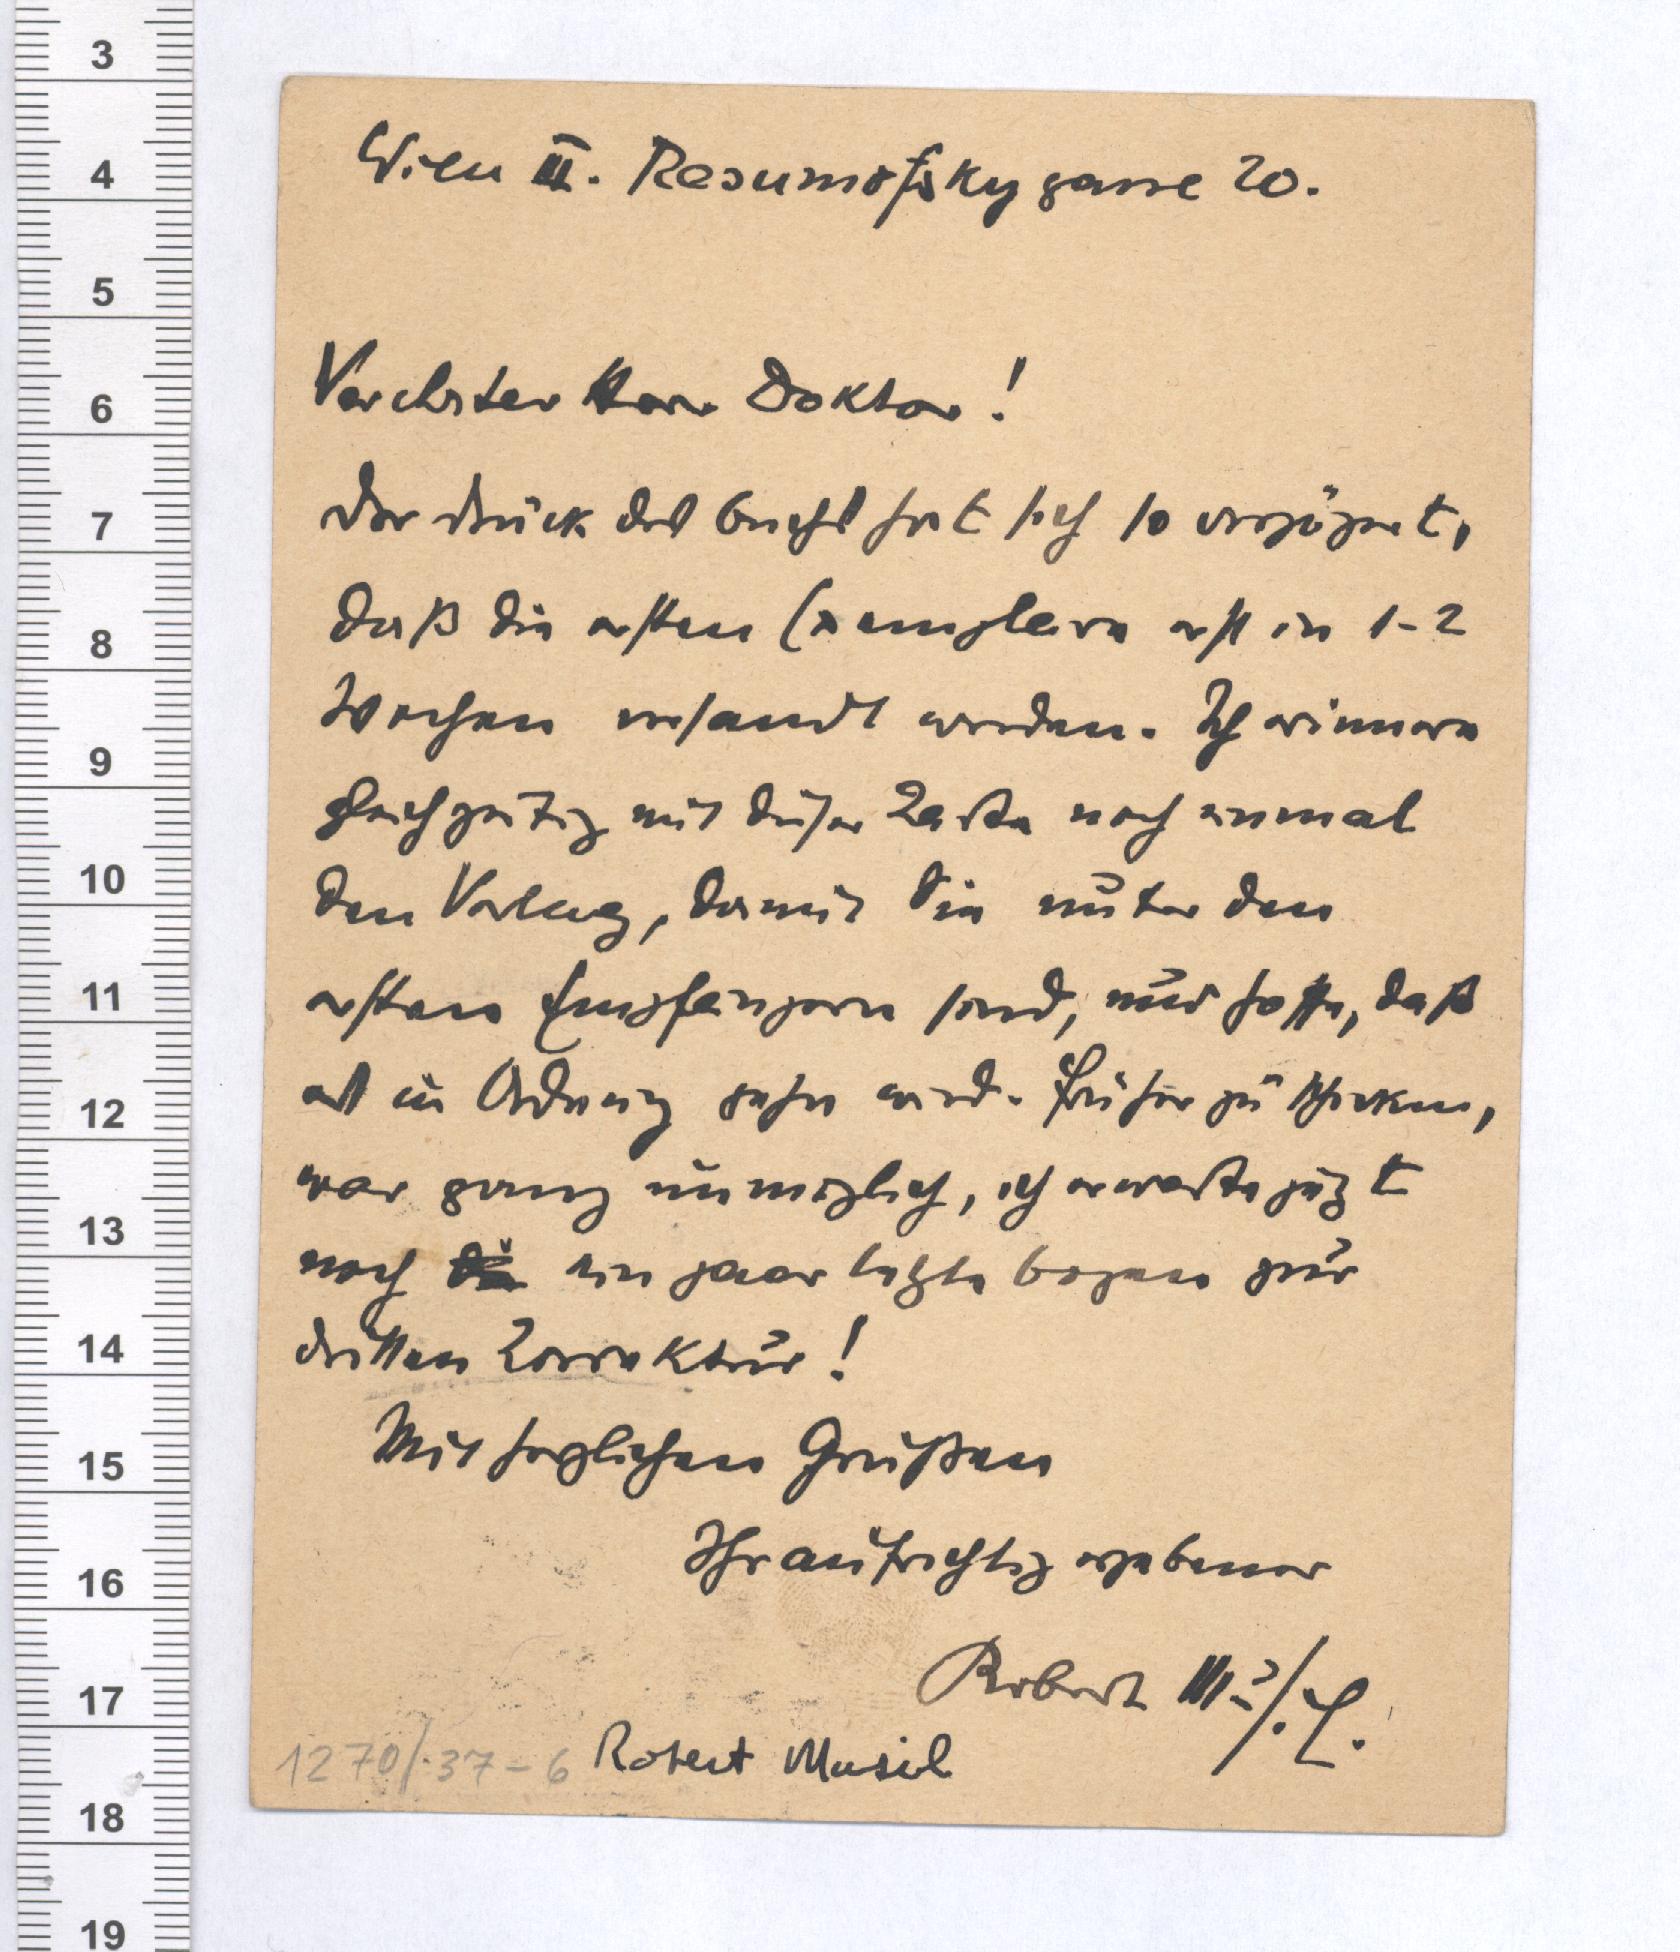 Wien III. Rasumofskygasse 20.
Verehrter Herr Doktor!
Der Druck des Buchs hat sich so verzögert,
daß die ersten Exemplare erst in 1-2
Wochen versandt werden. Ich erinnere
gleichzeitig mit dieser Karte noch einmal
den Verlag, damit Sie unter den
ersten Empfängern sind, und hoffe, daß
es in Ordnung gehn wird. Früher zu schicken,
war ganz unmöglich, ich erwarte jetzt
noch die ein paar letzte Bogen zur
dritten Korrektur!
Mit herzlichen Grüßen
Ihr aufrichtig ergebener
Robert Musil.
1270/.37-6 Robert Musil
3
4
5
6
7
8
9
10
11
12
13
14
15
16
17
18
19